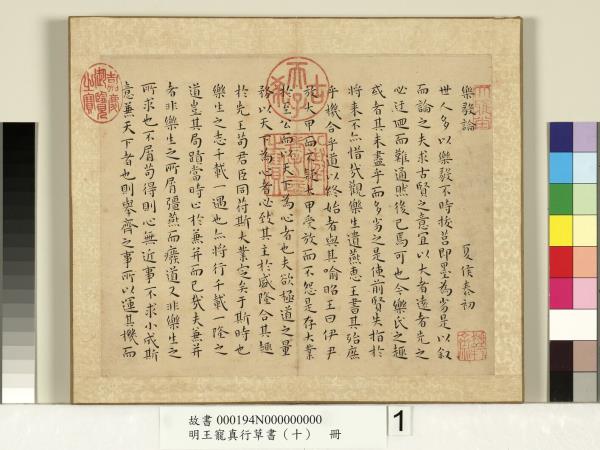 樂毅論
夏侯泰初
世人多以樂毅不時拔莒即墨為劣是以叙
而論之夫求古賢之意宜以大者遠者先之
必迂迴而難通然後已焉可也今樂氏之趣
或者其未盡乎而多劣之是使前賢失指於
將来不亦惜哉觀樂生遺燕惠王書其殆庶
乎機合乎道以終始者與其喻昭王曰伊尹
放大甲而不疑大甲受放而不怨是存大業
於至公而以天下為心者也夫欲極道之量
務以天下為心者必致其主於盛隆合其趣
於先王苟君臣同苻斯大業定矣于斯時也
樂生之志千載一遇也亦將行千載一隆之
道豈其局蹟當時止於兼并而已哉夫兼并
者非樂生之所屑彊燕而癈道又非樂生之
所求也不屑苟得則心無近事不求小成斯
意兼天下者也則舉齊之事所以運其機而
古希天子
嘉慶御覽之寶
故書 000194N000000000
明王寵真行草書（十） 冊
1